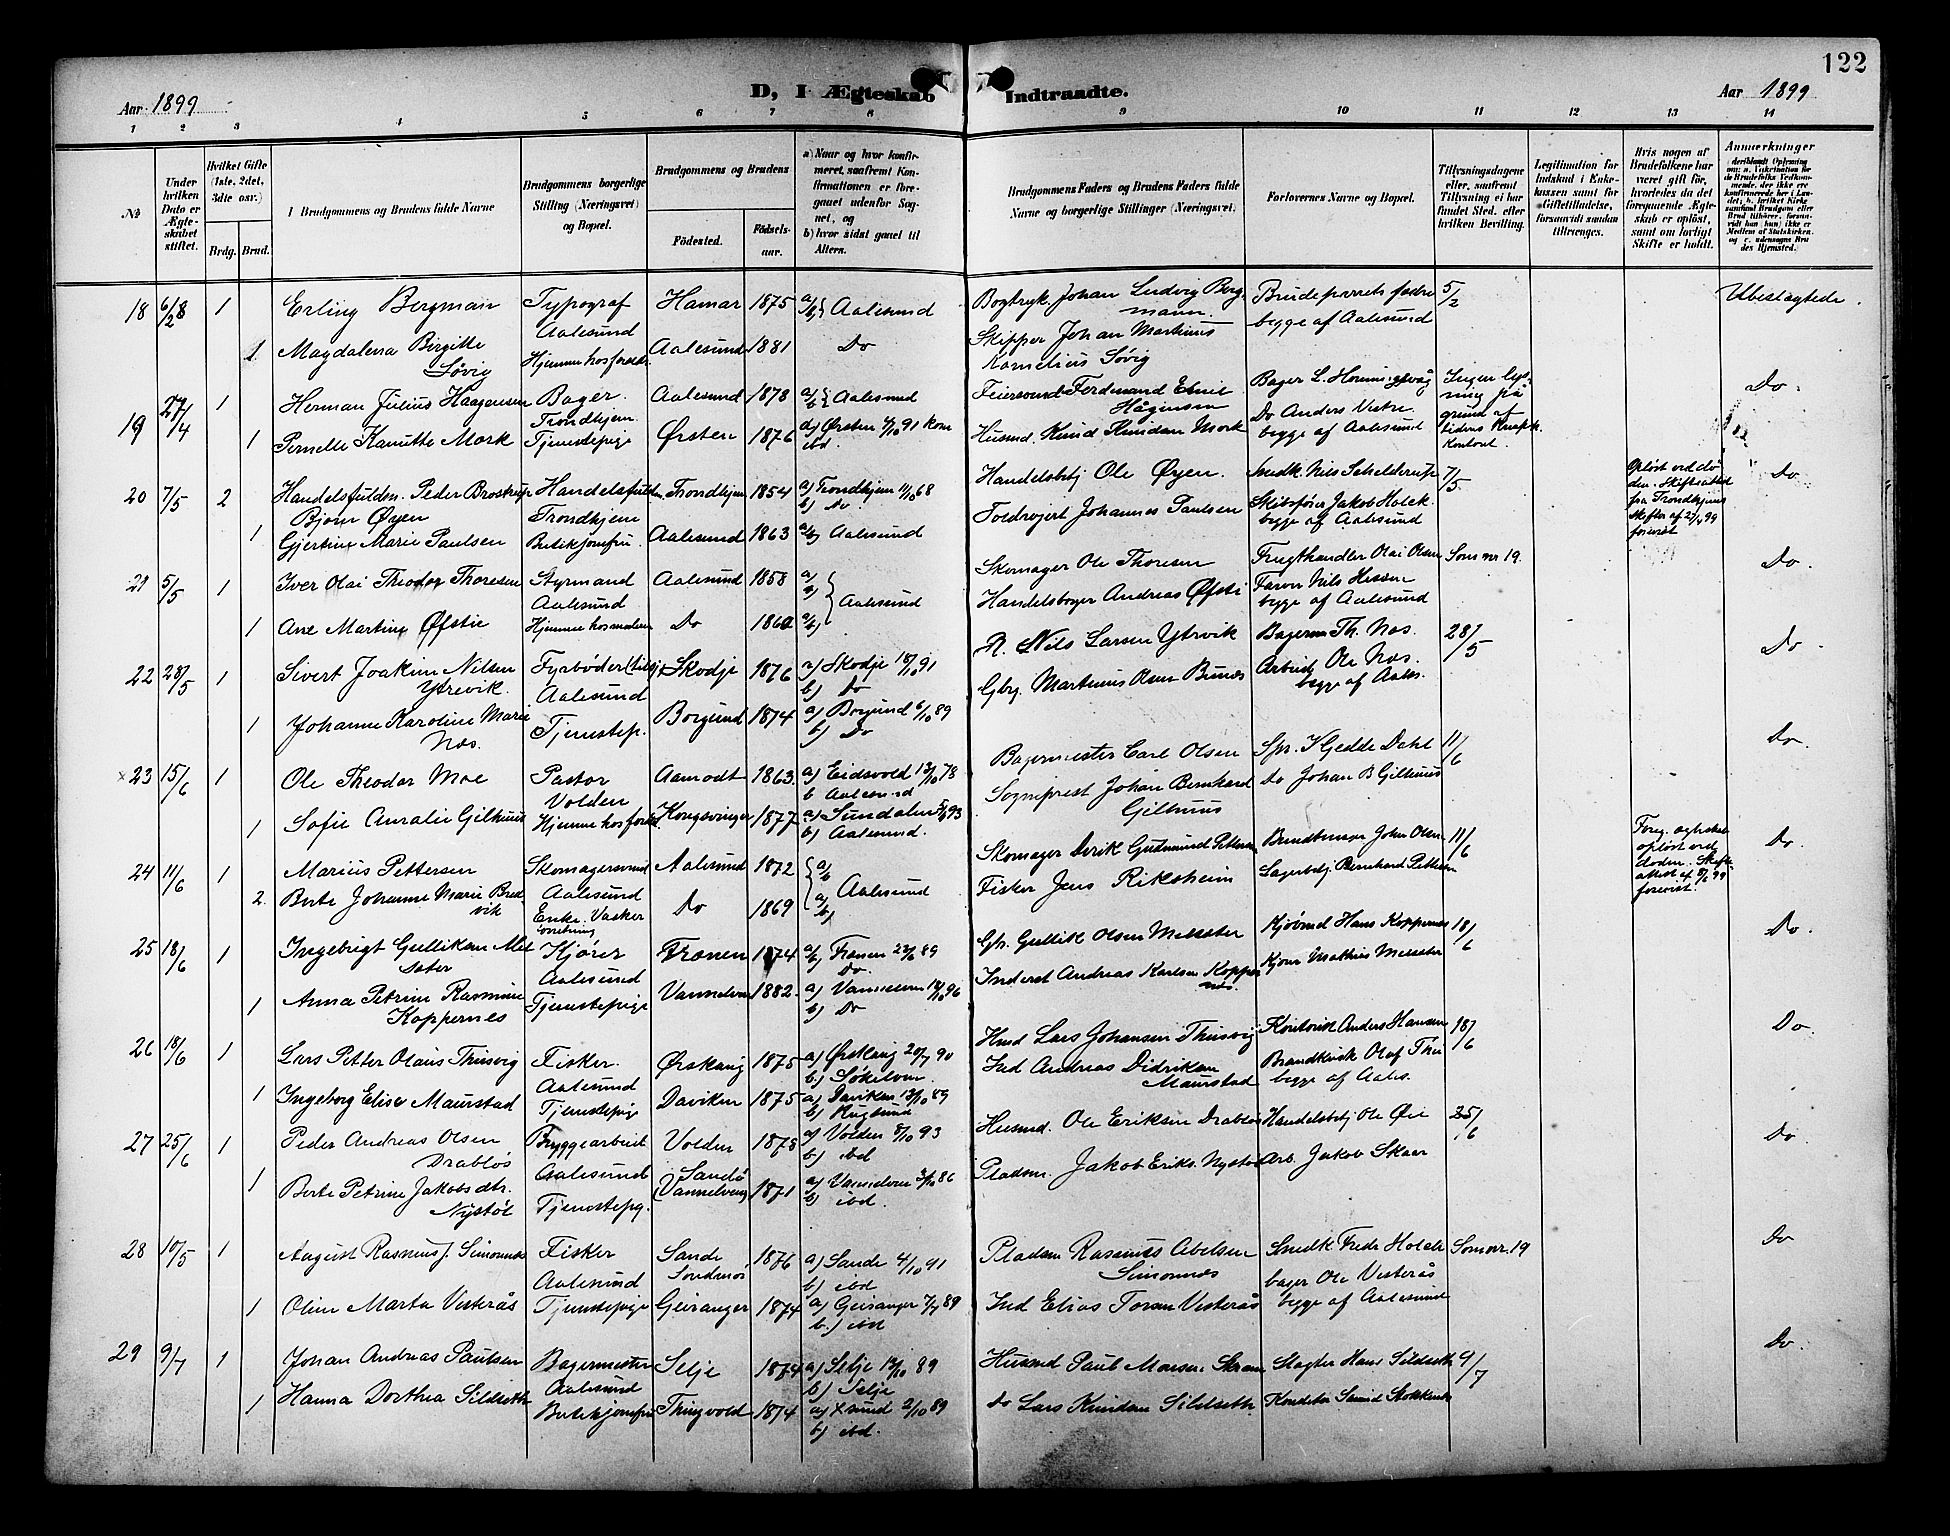 122
Aar 1899
D, I Ægteskab Indtraadte.
Aar 1899
1 2 3 4 5 6 7 8 9 10 11 12 13 14
No
Under hvilken Dato er Ægteskabet stiftet.
Hvilket Gifte (1ste, 2det, 3die osv.)
Brdg. Brud.
I Brudgommens og Brudens fulde Navne
Brudgommens borgerlige Stilling (Næringsvei) og Bopæl.
Brudgommens og Brudens
Fødested.
Fødselsaar.
a) Naar og hvor konfirmeret, saafremt Konfirmationen er foregaaet udenfor Sognet, og
b) hvor sidst gaaet til Alters.
Brudgommens Faders og Brudens Faders fulde Navne og borgerlige Stillinger (Næringsvei)
Forlovernes Navne og Bopæl.
Tillysningsdagene eller, saafremt Tillysning ei har fundet Sted, efter hvilken Bevilling.
Legitimation for Indskud i Enkekassen samt for Giftetilladelse, forsaavidt saadan tiltrænges.
Hvis nogen af Brudefolkene har været gift før, hvorledes da det foregaaende Ægteskab er opløst, samt om lovligt Skifte er holdt.
Anmærkninger
18 6/2 8 1 Erling Bergman Typograf Hamar 1875 a/b} Aalesund Bogtryk. Johan Ludvig Bergmann. Brudeparrets fædre 5/2 Ubeslægtede.
Aalesund begge af Aalesund
1 Magdalena Birgitte Løvig Hjemme hos foreld. Aalesund 1881 Do Skipper Johan Martinus Kornelius Søvig
19 27/4 1 Herman Julius Haagensen Bager. Aalesund 1878 a/b} Aalesund Feiersvend Ferdinand Emil Hågensen Bager L. Hornings­våg Ingen lysning på grund af tidens knaph. Do.
Trondhjem Do Anders Vestre
1 Pernelle Knutte Mork Tjenestepige Ørsten 1876 a) Ørsten 4/10 91 b) ibd. Husmd. Knud Knudsen Mork begge af Aalesund
20 7/5 2 Handelsfuldm. Peder Brostrup Bjørn Øyen Handelsfuldm. Trondhjem 1854 a) Trondhjem 11/10 68 b) Do. Handelsbtj Ole Øyen. Snedk. Nils Schelderup 7/5 Opløst ved døden. Skifteattest fra Trondhjems Skifter af 27/4 99 forevist Do
Trondhjem Skibsfører Jakob Holck.
1 Gjertine Marie Paulsen Butikjomfru Aalesund 1863 a/b) Aalesund Toldrojert Johannes Paulsen begge af Aalesund
21 5/5 1 Iver Olai Theodor Thoresen Styrmand Aalesund 1858 a) b) } Aalesund Skomager Ole Thoresen Frugthandler Olai Olsen Som nr 19. Do.
Aalesund Farver Nils Hessen
1 Ane Martine Øfstie Hjemme hos moderen Do a/b) Handelsborger Andreas Øfsti begge af Aalesund
22 28/5 1 Sivert Joakim Nilsen Ytrevik. Fyrbøder Skodje 1876 a) Skodje 18/10 91 b) Do Nils Larsen Ytrvik Bagerm Th. Næs. 28/5 Do
Aalesund Arbeid. Ole Næs.
1 Johanne Karoline Marie Næs. Tjenestep. Borgund 1874 a) Borgund 6/10 89 b) Do Gbg. Martinus Olsen begge af Aales.
×23 15/6 1 Ole Theodor Moe Pastor Aamodt 1863 a) Eidsvold 13/10 78 b Aalesund Bagermester Carl Olsen Spr. K Gjedde Dahl 11/6 Do.
Volden
1 Sofie Amalie Gilhuus Hjemme hos foreld. Kongsvinger 1877 a) Sundalen 93 b) Aalesund. Sogneprest Johan Bernhard Gilhuus Do Johan B Gilhuus
24 11/6 1 Marius Pettersen Skomagersvend Aalesund 1872 a/b Aalesund Skomager Gudmund Pettersen Bundtmager John Olsen 11/6 Foreg. ægteskab opløst ved døden. Skifteattest af 8/6 99 forevist. Do.
Aalesund
2. Berte Johanne Marie Bredvik Enke. Vasker Do 1869 a/b) Fisker Jens Riksheim Lagerbtj. Bernhard Pettersen
25 18/6 1 Ingebrigt Gulliksen Melsæter Kjører Frænen 1874 a/b) Frænen 23/6 89 Do. Gbr. Gullik Olsen Melsæter Kjøbmd Hans Koppernæs 18/6 Do.
Aalesund
1 Anna Petrine Rasmine Koppernes Tjenestepige Vannelven 1882. a) Vannelven 18/10 96 b) Do Inderst Andreas Karlsen Koppernæs. Kjører Mathias Melsæter
26 18/6 1 Lars Petter Olaus Thusvig Fisker. Ørskaug 1875 a) Ørskaug 20/7 90 b) Søkelven. Hmd Lars Johansen Thusvig Kontorist Anders Hansen 18/6 Do
Aalesund Olaf Thu
1 Ingeborg Elise Maurstad Tjenestepige Daviken 1875 a) Daviken 13/10 89 b) Rugsund Ind Andreas Didriksen Maurstad begge af Aales.
27 25/6 1 Peder Andreas Olsen Drabløs Bryggearbeid. Volden 1875 a) Volden 8/10 93 b) ibd Husmd. Ole Eriksen Drabløs Handelsbtj Ole Øie 25/6 Do.
Aalesund
1 Berte Petrine Jakobsdtr. Nystøl Tjenestepg. Sandø (Vannelven) 1871 a) Vannelven 3/10 86 b) ibd. Pladsm. Jakob Eriks. Nystøl Arb. Jakob Skaar
28 10/5 1 August Rasmus J. Simonnæs Fisker Sande Søndmør 1876 a) Sande 4/10 91 b) ibd Pladsm Rasmus Abelsen Simonnæs Snedk Fredr Holck Som nr. 19 Do
Aalesund bager Ole Vesterås
1 Oline Marta Vesterås Tjenestepige Geiranger 1874 a) Geiranger 7/7 89 b.) ibd Ind Elias Toresen Vesterås begge af Aalesund
29 9/7 1 Johan Andreas Paulsen Bagermester Selje 1874 a) Selje 13/10 89 b) Selje Husmd Paul Monsen Skram Slagter Hans Sildseth 9/7 Do.
Aalesund
1 Hanna Dorthea Sildseth Butikjomfru Thingvold 1874 a) Xsund 2/10 89 b) ibd. Do Lars Knudsen Sildseth Konditor Stokkeseth